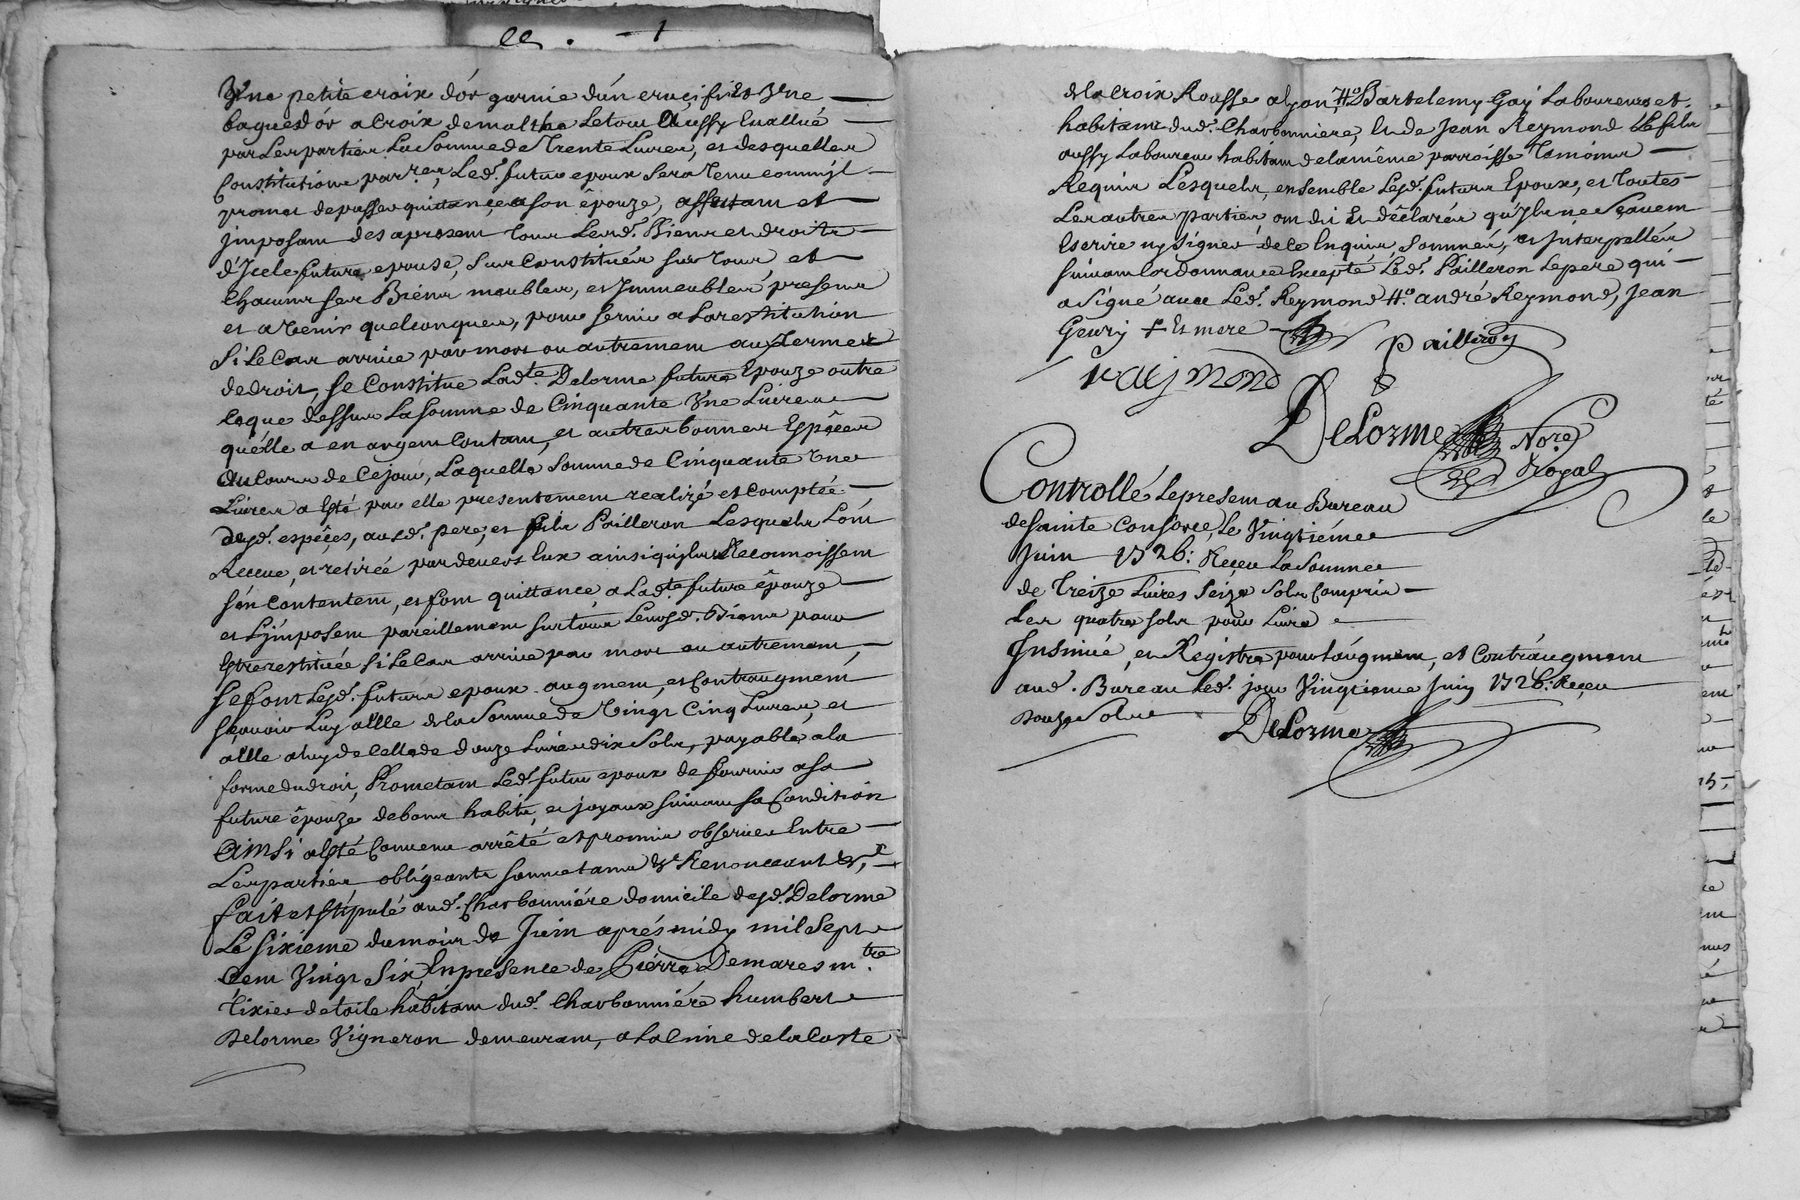 Une petite croix d'or garnie d'un crucifix et Une
bague d'or a croix de malthe Le tout aussy Evallué
par Les parties La somme de Trente Livres, et desquelles
Constitutions par.res, Led. futur epoux sera Tenu comm'jl
promet de passer quittance a son êpouze, assettant et
jmposant des apresent tous Lesd. Biens et droits
d'Jcele future epouse, sur constituées sur tous, et
Chacuns ses Biens meubles, et Jmmeubles presens
et a venir quelconques, pour servir a La restitution
si Le Cas arrive par mort ou autrement aux Termes
de droit, se Constitue Lad.te Delorme future Epouze outre
Ce que dessus La somme de Cinquante Une Livres
qu'elle a en argent Contant, et autres bonnes Espêces
au Cours de Ce jour, Laquelle somme de Cinquante Une
Livres a Esté par elle presentement realizé et comptée
desd. espêces, aud. pere, et fils Pailleron Lesquels L'ont
Receue, et retirée pardevers Eux ainsi qu'jls Le Reconnoissent
s'en Contentent, et font quittance, a Lad.te future êpouze
et L'jmposent pareillement sur tous Leursd. Biens pour
Estre restituée si Le Cas arrive par mort ou autrement,
se font Lesd. futurs epoux augment, et Contraugment
sçavoir Luy a Elle de La Somme de Vingt Cinq Livres, et
a Elle a Luy de Celle de douze Livres dix Sols, payable a la
forme du droit, Prometant Led. futur epoux de fournir a sa
future êpouze de bons habits, et joyaux suivant sa Condition
Ainsi a Esté Convenu arrêté et promis observer Entre
Les parties obligeants soumetants &c Renonceants &c,
fait et stipulé aud. Charbonniére domicile desd. Delorme
Le sixieme du mois de Juin aprés midy mil Sept
Cent Vingt Six, En presence de Piérre Demares m.tre
Tixier de toile habitant dud. Charbonniére humbert
Delorme Vigneron demeurant, a La Cime de la Coste
de la croix Rousse a Lyon, H.e Bartelemy Gay Laboureur et
habitant dud. Charbonniere, Et de Jean Reymond Le fils
aussy Laboureur habitant de la même parroisse Temoins
Requis Lesquels, ensemble Lesd. futurs Epoux, et Toutes
Les autres parties ont dit Et dêclarér qu'Jls ne Sçavent
Escrire ny Signer de Ce Enquis Sommés, et Jnterpellés
suivant L'ordonnance Excepté Led. Pailleron Le pere qui
a Signé avec Led. Reymond H.e andré Reymond, Jean
Geury + Et mere
Pailleron
raymond
Delorme Nore
Royal
Controllé Le present au Bureau
de sainte Consorce, Le Vingtiéme
Juin 1726: Reçeu La Somme
de Treize Livres Seize Sols Compris
Les quatre sols pour Livre
Jnsinué, et Registré pour L'augment, et Contraugment
aud. Bureau Led. jour Vingtieme Juin 1726: Reçeu
Douze Sols
Delorme